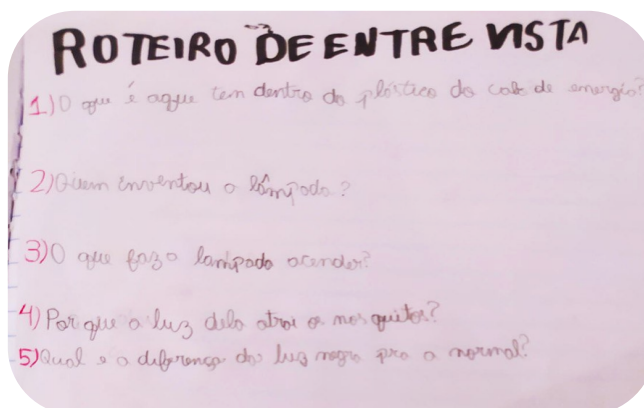 ROTEIRO DE ENTREVISTA
1.) O que é aque tem dentro do plástico do cabo de energia?
2) Quem inventou a lâmpada?
3) O que faz a lampada acender?
4) Por que a luz dela atrai os mosquitos?
5) Qual e a diferença da luz negra pra a normal?